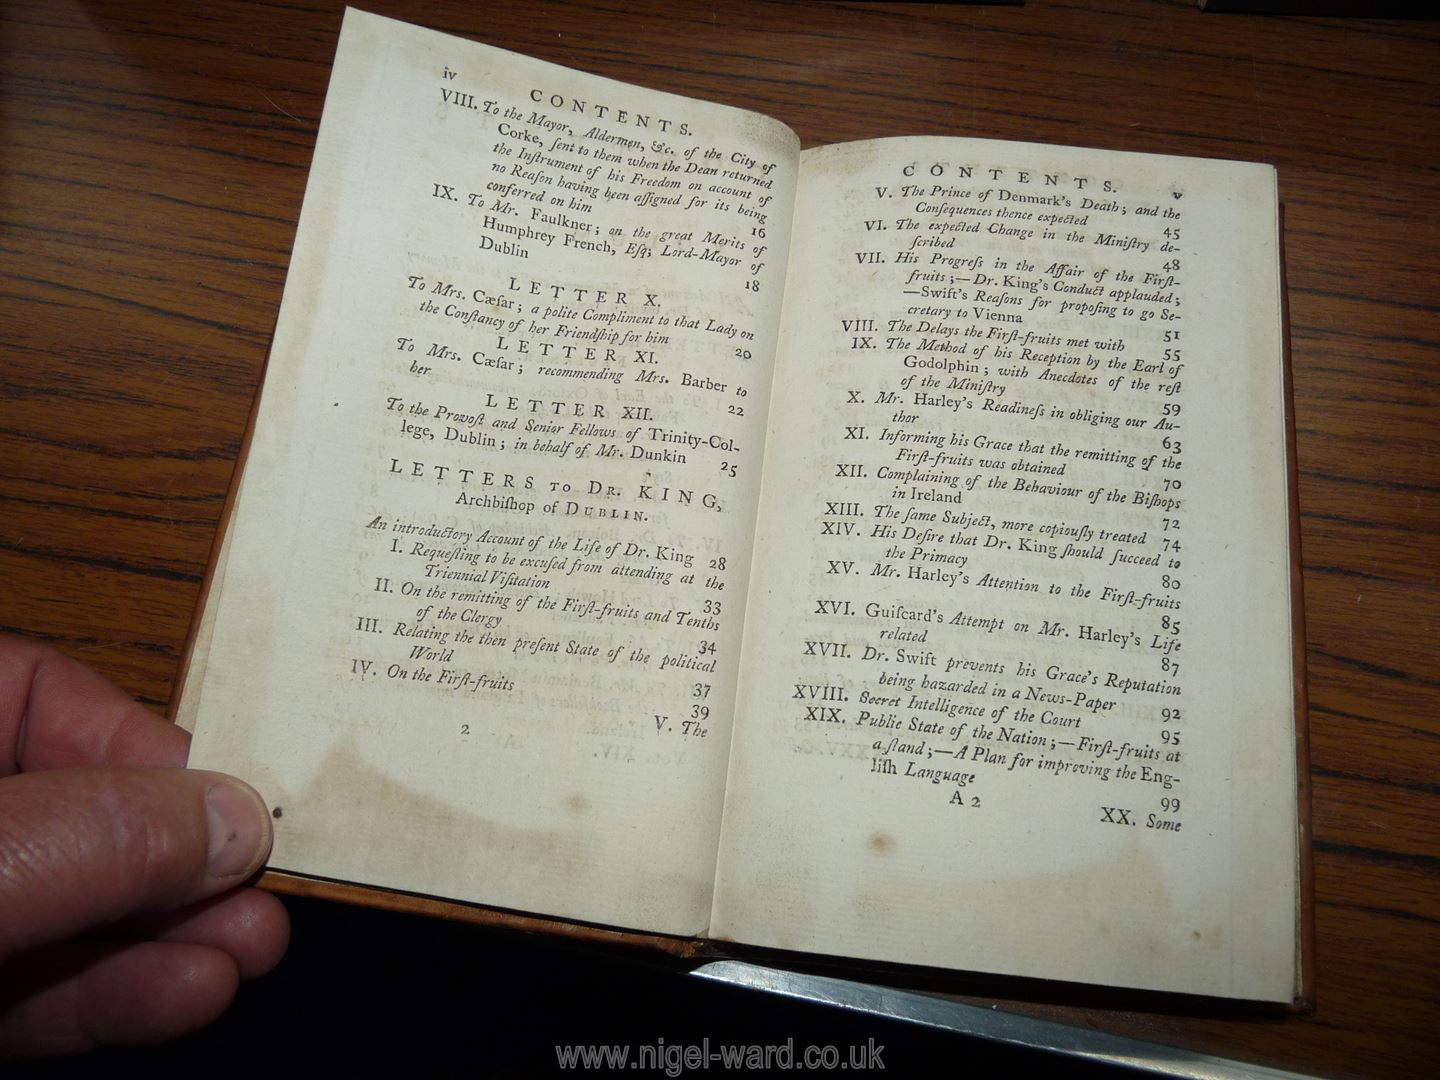 iv
CONTENTS.
VIII. To the Mayor, Aldermen, &c. of the City of
Corke, ſent to them when the Dean returned
the Inſtrument of his Freedom on account of
no Reaſon having been aſſigned for its being
conferred on him 16
IX. To Mr. Faulkner; on the great Merits of
Humphrey French, Eſq; Lord-Mayor of
Dublin 18
LETTER X.
To Mrs. Cæſar; a polite Compliment to that Lady on
the Conſtancy of her Friendſhip for him 20
LETTER XI.
To Mrs. Cæſar; recommending Mrs. Barber to
her 22
LETTER XII.
To the Provoſt and Senior Fellows of Trinity-Col-
lege, Dublin; in behalf of Mr. Dunkin 25
LETTERS TO DR. KING,
Archbiſhop of DUBLIN.
An introductory Account of the Life of Dr. King 28
I. Requeſting to be excuſed from attending at the
Triennial Viſitation 33
II. On the remitting of the Firſt-fruits and Tenths
of the Clergy 34
III. Relating the then preſent State of the political
World 37
IV. On the Firſt-fruits 39
2 V. The
CONTENTS. v
V. The Prince of Denmark's Death; and the
Conſequences thence expected 45
VI. The expected Change in the Miniſtry de-
ſcribed 48
VII. His Progreſs in the Affair of the Firſt-
fruits;—Dr. King's Conduct applauded;
—Swift's Reaſons for propoſing to go Se-
cretary to Vienna 51
VIII. The Delays the Firſt-fruits met with 55
IX. The Method of his Reception by the Earl of
Godolphin; with Anecdotes of the reſt
of the Miniſtry 59
X. Mr. Harley's Readineſs in obliging our Au-
thor 63
XI. Informing his Grace that the remitting of the
Firſt-fruits was obtained 70
XII. Complaining of the Behaviour of the Biſhops
in Ireland 72
XIII. The ſame Subject, more copiouſly treated 74
XIV. His Deſire that Dr. King ſhould ſucceed to
the Primacy 80
XV. Mr. Harley's Attention to the Firſt-fruits
85
XVI. Guiſcard's Attempt on Mr. Harley's Life
related 87
XVII. Dr. Swift prevents his Grace's Reputation
being hazarded in a News-Paper 92
XVIII. Secret Intelligence of the Court 95
XIX. Public State of the Nation;—Firſt-fruits at
a ſtand;—A Plan for improving the Eng-
liſh Language 99
A 2 XX. Some
www.nigel-ward.co.uk